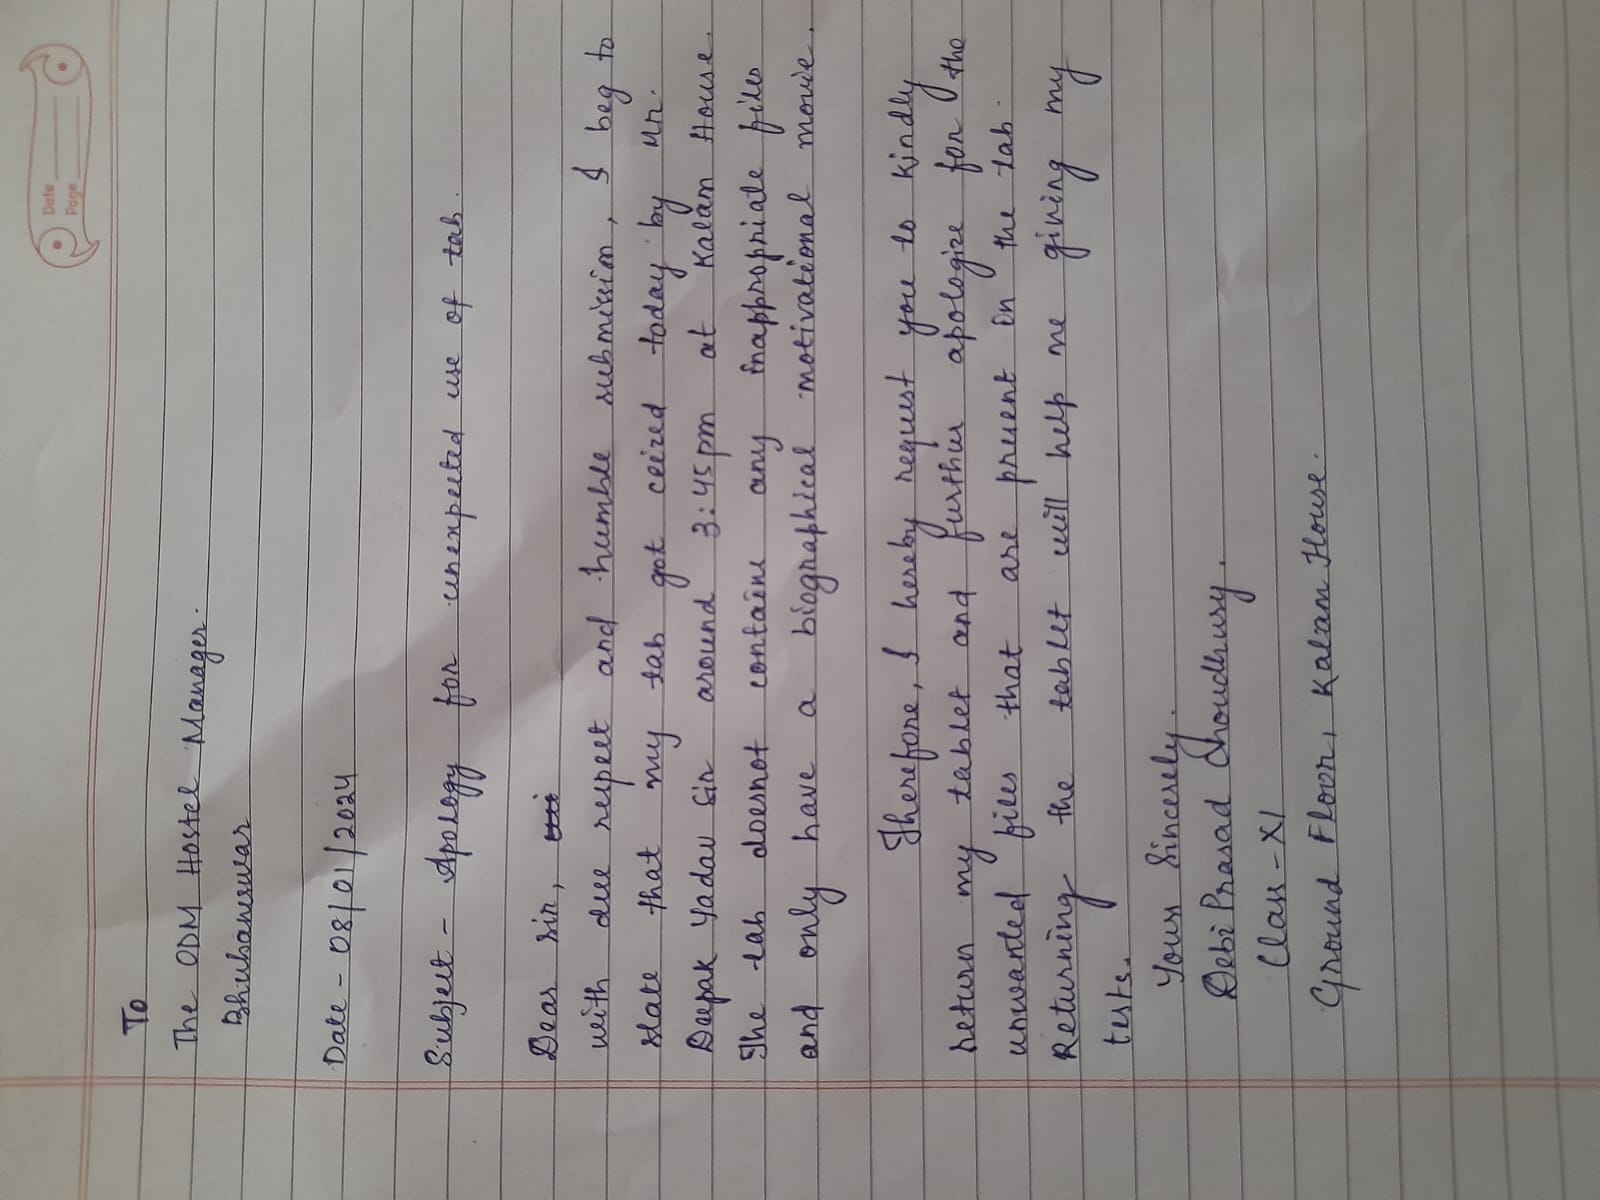 Date
Page
To
The ODM Hostel Manager.
Bhubaneswar
Date - 08/01/2024
Subject - Apology for unexpected use of tab.
Dear sir,
with due respect and humble submission, I beg to
state that my tab got ceized today by Mr.
Deepak Yadav Sir around 3:45pm at Kalam House.
The tab doesnot containe any inappropriate files
and only have a biographical motivational movie.
Therefore, I hereby request you to kindly
return my tablet and further apologize for the
unwanted files that are present in the tab.
Returning the tablet will help me giving my
tests.
Yours Sincerely.
Debi Prasad Choudhury.
Class - XI
Ground Floor, Kalam House.